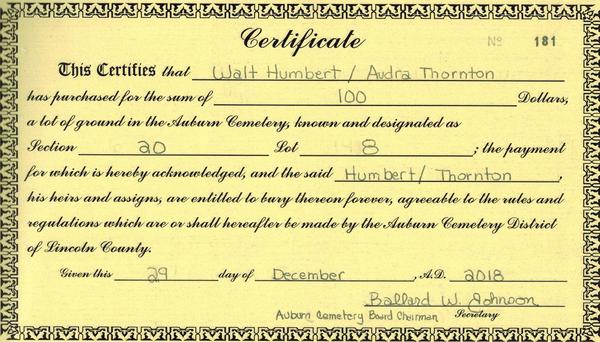 Certificate
No 181
This Certifies that Walt Humbert / Audra Thornton
has purchased for the sum of 100 Dollars,
a lot of ground in the Auburn Cemetery, known and designated as
Section 20 Lot 8 ; the payment
for which is hereby acknowledged, and the said Humbert / Thornton ,
his heirs and assigns, are entitled to bury thereon forever, agreeable to the rules and
regulations which are or shall hereafter be made by the Auburn Cemetery District
of Lincoln County.
Given this 29 day of December , A.D. 2018
Ballard W. Johnson
Auburn Cemetery Board Chairman Secretary